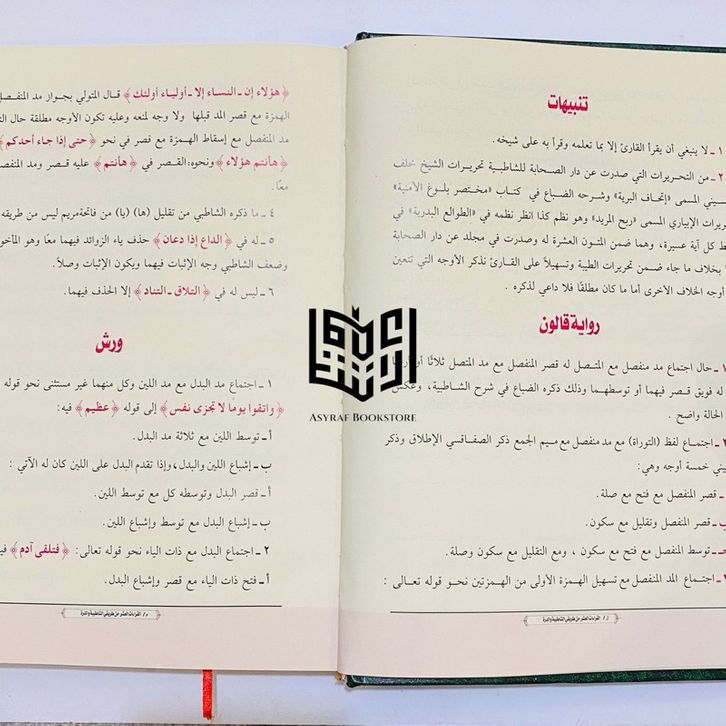 تنبيهات
١ـ لا ينبغي أن يقرأ القارئ إلا بما تعلمه وقرأ به على شيخه.
٢ـ من التحريرات التي صدرت عن دار الصحابة للشاطبية تحريرات الشيخ خلف
سيني المسمى «إتحاف البرية» وشرحه الضباع في كتاب «مختصر بلوغ الأمنية»
ريرات الإبياري المسمى «ربح المريد» وهو نظم كذا انظر نظمه في «الطوالع البدرية» في
ط كل آية عسيرة، وهما ضمن المتون العشرة له وصدرت في مجلد عن دار الصحابة
بخلاف ما جاء ضمن تحريرات الطيبة وتسهيلاً على القارئ نذكر الأوجه التي تتعين
أوجه الخلاف الأخرى أما ما كان مطلقًا فلا داعي لذكره.
رواية قالون
١ـ حال اجتماع مد منفصل مع المتصل له قصر المنفصل مع مد المتصل ثلاثًا أو أربعًا
له فويق قصر فيهما أو توسطهما وذلك ذكره الضباع في شرح الشاطبية، وعكس
الحالة واضح.
٢ـ اجتماع لفظ (التوراة) مع مد منفصل مع ميم الجمع ذكر الصفاقسي الإطلاق وذكر
يني خمسة أوجه وهي:
ـ قصر المنفصل مع فتح مع صلة.
ب ـ قصر المنفصل وتقليل مع سكون.
جـ ـ توسط المنفصل مع فتح مع سكون، ومع التقليل مع سكون وصلة.
ـ اجتماع المد المنفصل مع تسهيل الهمزة الأولى من الهمزتين نحو قوله تعالى:
ز/ القراءات العشر من طريقي الشاطبية والدرة
﴿هؤلاء إن ـ النساء إلا ـ أولياء أولئك﴾ قال المتولي بجواز مد المنفصل
الهمزة مع قصر المد قبلها ولا وجه لمنعه وعليه تكون الأوجه مطلقة حال
مد المنفصل مع إسقاط الهمزة مع قصر في نحو ﴿حتى إذا جاء أحدكم﴾
﴿هأنتم هؤلاء﴾ ونحوه: القصر في ﴿هأنتم﴾ عليه قصر ومد المنفصل
معًا.
٤ ـ ما ذكره الشاطبي من تقليل (ها) (يا) من فاتحة مريم ليس من طريقه
٥ ـ له في ﴿الداع إذا دعان﴾ حذف ياء الزوائد فيهما معًا وهو المأخوذ
وضعف الشاطبي وجه الإثبات فيهما ويكون الإثبات وصلاً.
٦ ـ ليس له في ﴿التلاق ـ التناد﴾ إلا الحذف فيهما.
ورش
١ ـ اجتماع مد البدل مع مد اللين وكل منهما غير مستثنى نحو قوله
﴿واتقوا يوما لا تجزى نفس﴾ إلى قوله ﴿عظيم﴾ فيه:
أ ـ توسط اللين مع ثلاثة مد البدل.
ب ـ إشباع اللين والبدل، وإذا تقدم البدل على اللين كان له الآتي:
أ ـ قصر البدل وتوسطه كل مع توسط اللين.
ب ـ إشباع البدل مع توسط وإشباع اللين.
٢ ـ اجتماع البدل مع ذات الياء نحو قوله تعالى: ﴿فتلقى آدم﴾
أ ـ فتح ذات الياء مع قصر وإشباع البدل.
م/ القراءات العشر من طريقي الشاطبية والدرة
Asyraf Bookstore